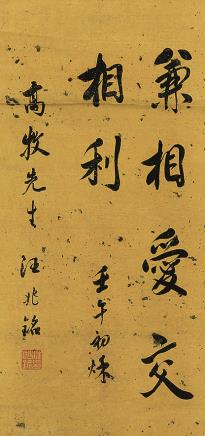 兼相愛交
相利
壬午初秌
高牧先生 汪兆銘